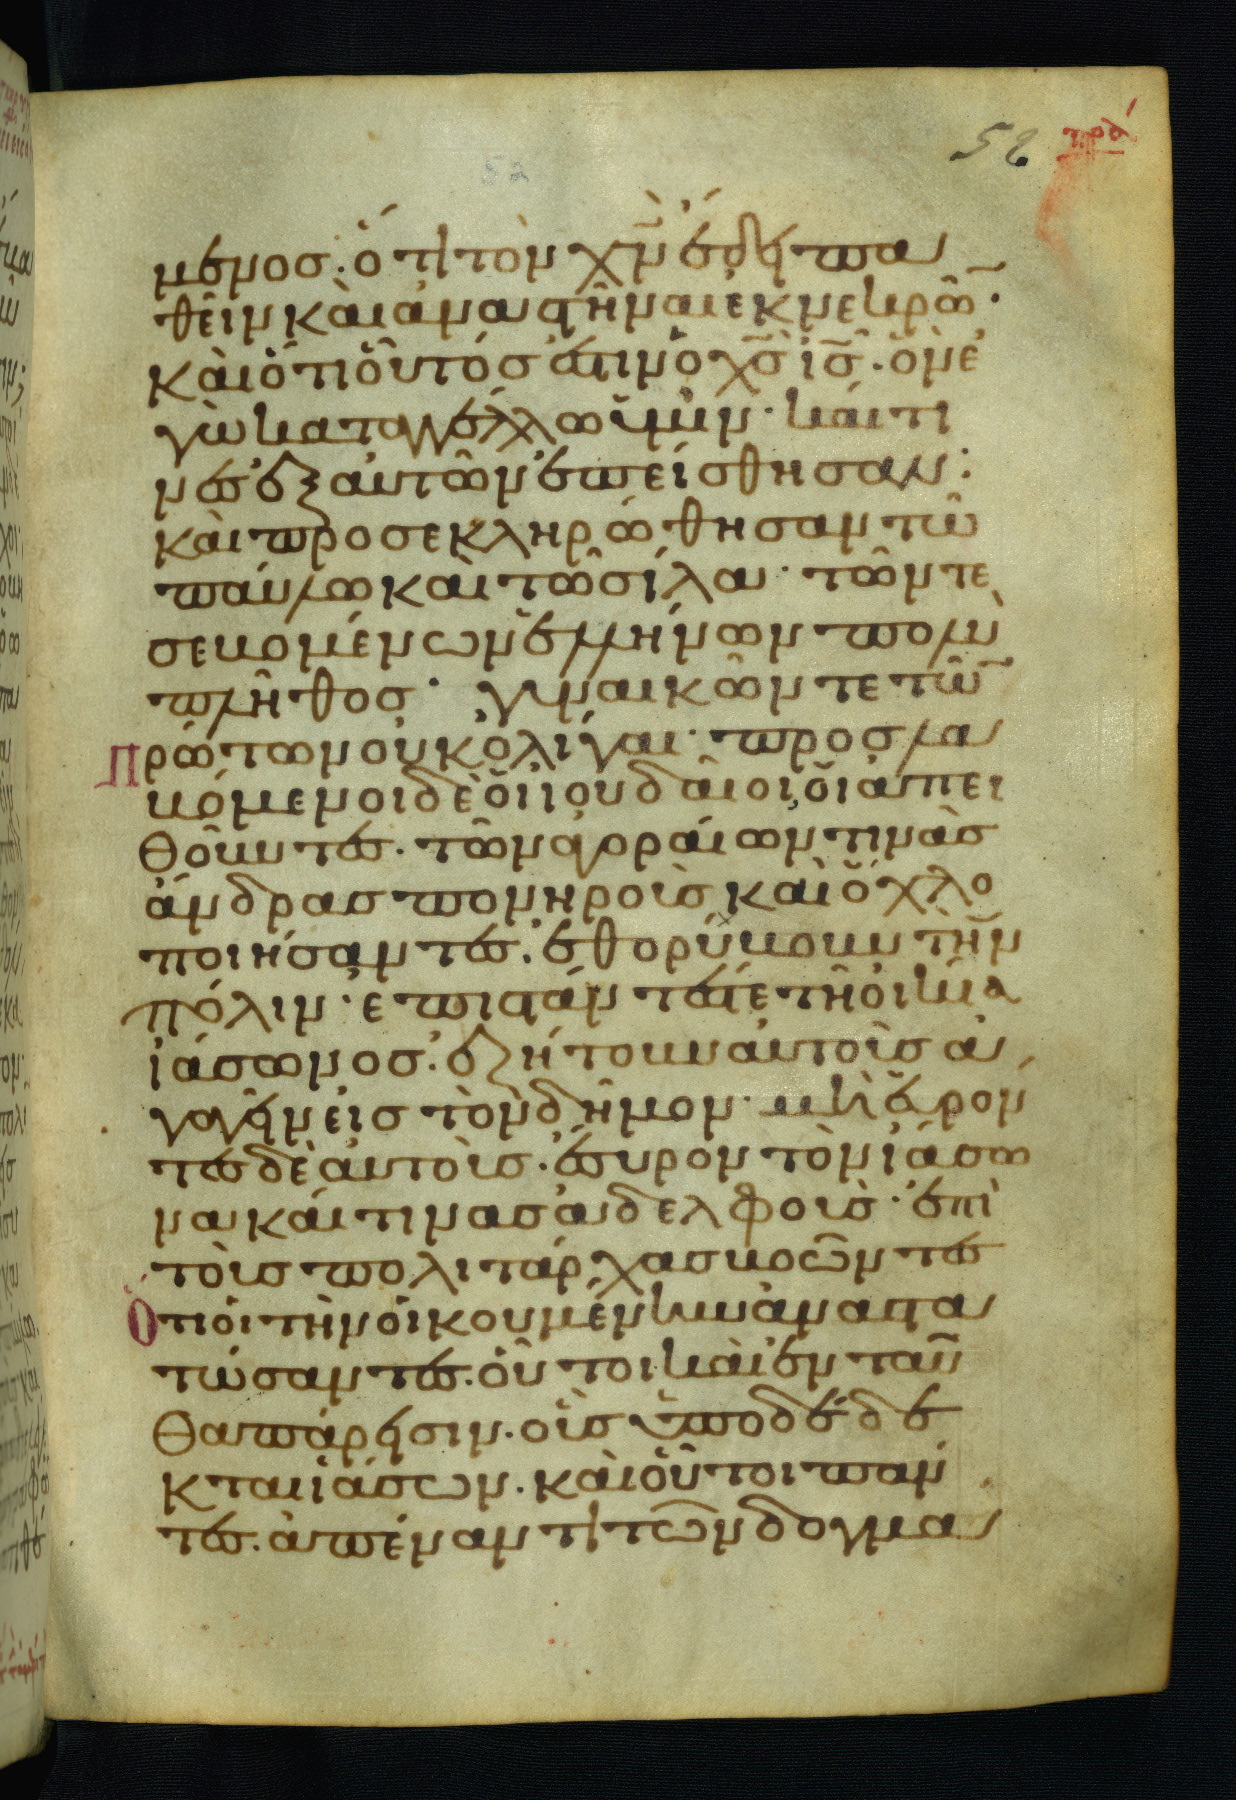 52 πρα
52
μενος· ὅτι τὸν χ̅ν̅ ἔδει πα
θεῖν καὶ ἀναστῆναι ἐκ νεκρῶ̅·
καὶ ὅτι οὗτός ἐστιν ὁ χ̅ς̅ ι̅ς̅· ὃν ἐ
γὼ καταγγέλλω ὑμῖν· καί τι
νες ἐξ αὐτῶν ἐπείσθησαν·
καὶ προσεκληρώθησαν τῶ
παύλω καὶ τῶ σίλα· τῶν τε
σεβομένων ἑλλήνων πολὺ
πλῆθος· γυναικῶν τε τῶ̅
πρώτων οὐκ ὀλίγαι· προσλα
βόμενοι δὲ οἱ ἰουδαῖοι οἱ ἀπει
θοῦντες· τῶν ἀγοραίων τινὰς
ἄνδρας πονηροὺς καὶ ὀχλο
ποιήσαντες· ἐθορύβουν τὴν
πόλιν· ἐπιστάντές τε τῆ οἰκία
ἰάσωνος· ἐζήτουν αὐτοὺς ἀ
γαγεῖν εἰς τὸν δῆμον· μὴ εὑρόν
τες δὲ αὐτοὺς· ἔσυρον τὸν ἰάσω
να καί τινας ἀδελφοὺς· ἐπὶ
τοὺς πολιτάρχας βοῶντες
ὅτι οἱ τὴν οἰκουμένην ἀναστα
τώσαντες· οὗτοι καὶ ἐνταῦ
θα πάρεισιν· οὓς ὑποδέδε
κται ἰάσων· καὶ οὗτοι πάν
τες· ἀπέναντι τῶν δογμα